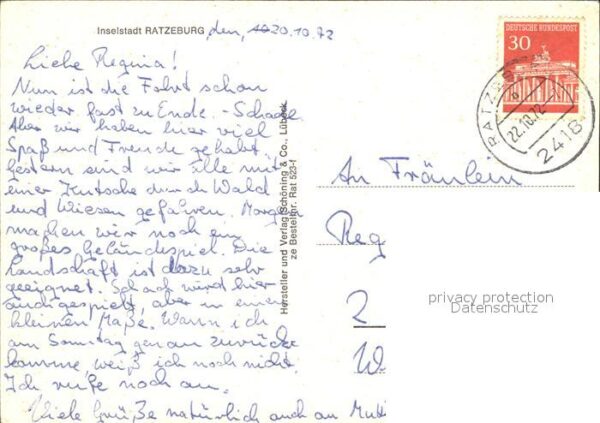 Inselstadt RATZEBURG, den, 20.10.72
Liebe Regina!
Nun ist die Fahrt schon
wieder fast zu Ende. - Schade.
Aber wir haben hier viel
Spaß und Freude gehabt.
Gestern sind wir alle mit
einer Kutsche durch Wald
und Wiesen gefahren. Morgen
machen wir noch ein
großes Geländespiel. Die
Landschaft ist dazu sehr
geeignet. Schach wird hier
auch gespielt, aber in einem
kleinen Maße. Wann ich
am Samstag genau zurück
komme, weiß ich noch nicht.
Ich rufe noch an.
Viele Grüße natürlich auch an Mutti
Hersteller und Verlag Schöning & Co., Lübeck
ze Bestellnr. Rat 523-f
DEUTSCHE BUNDESPOST
30
RATZEBURG
22.10.72
2418
An Fräulein
Reg
2
W
privacy protection
Datenschutz